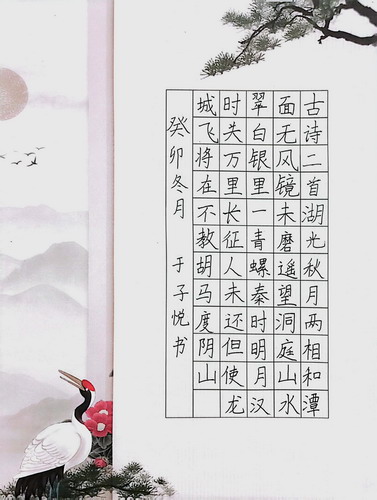 古诗二首湖光秋月两相和潭
面无风镜未磨遥望洞庭山水
翠白银里一青螺秦时明月汉
时关万里长征人未还但使龙
城飞将在不教胡马度阴山
癸卯冬月 于子悦书